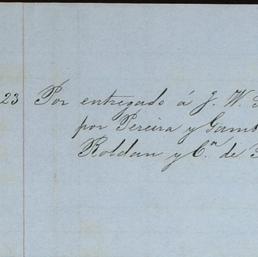 23 Por entregado á J. W.
por Pereira y Gamb
Roldan y Cª de